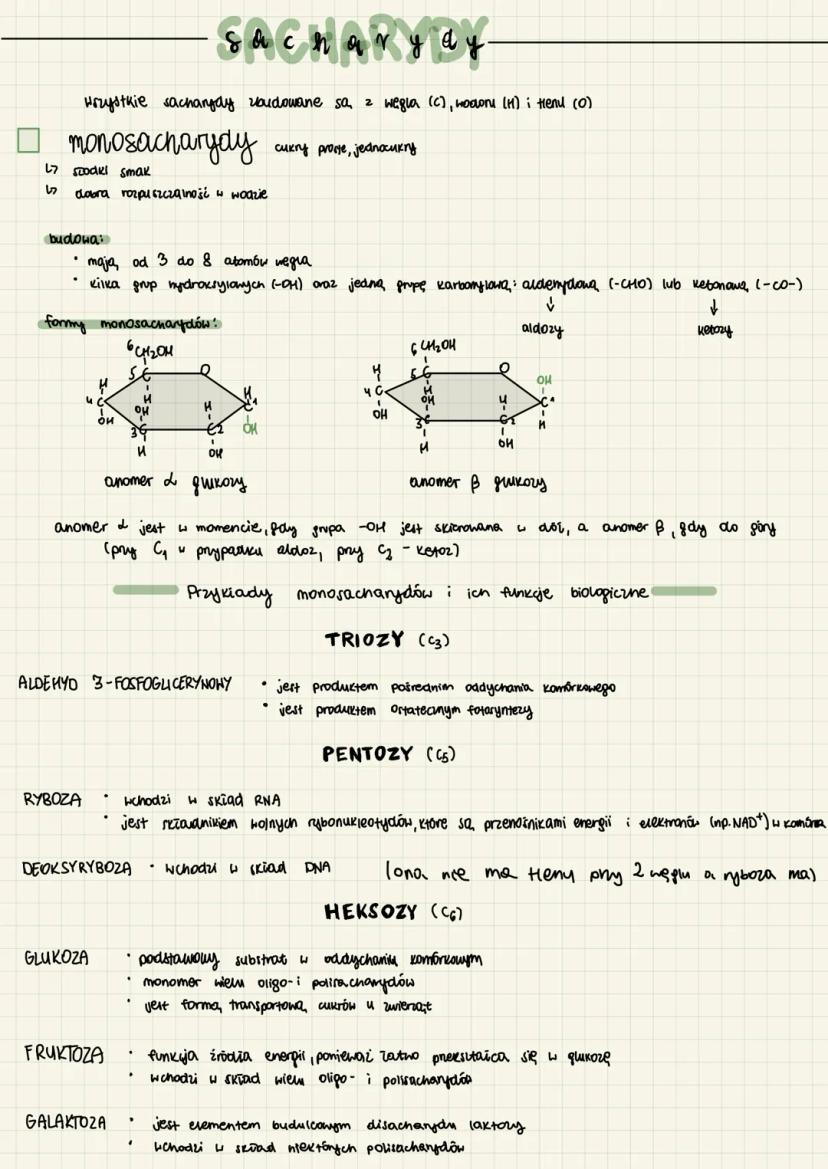 SACHARYDY
sacharydy
wszystkie sacharydy zbudowane są z węgla (C), wodoru (H) i tlenu (O)
monosacharydy cukry proste, jednocukry
↳ słodki smak
↳ dobra rozpuszczalność w wodzie
budowa:
• mają od 3 do 8 atomów węgla
• kilka grup hydroksylowych (-OH) oraz jedną grupę karbonylową: aldehydową (-CHO) lub ketonową (-CO-)
↓ ↓
aldozy ketozy
formy monosacharydów:
6 CH₂OH 6 CH₂OH
5 C O 5 C O OH
H H H H H
4 C OH H C 1 4 C OH H C 1
OH 3 C C 2 OH OH 3 C C 2 H
H OH H OH
anomer α glukozy anomer β glukozy
anomer α jest w momencie, gdy grupa -OH jest skierowana w dół, a anomer β, gdy do góry
(przy C₁ w przypadku aldoz, przy C₂ - ketoz)
Przykłady monosacharydów i ich funkcje biologiczne
TRIOZY (C₃)
ALDEHYD 3-FOSFOGLICERYNOWY • jest produktem pośrednim oddychania komórkowego
• jest produktem ostatecznym fotosyntezy
PENTOZY (C₅)
RYBOZA • wchodzi w skład RNA
• jest składnikiem wolnych rybonukleotydów, które są przenośnikami energii i elektronów (np. NAD⁺) w komórce
DEOKSYRYBOZA • wchodzi w skład DNA (ona nie ma tlenu przy 2 węglu a ryboza ma)
HEKSOZY (C₆)
GLUKOZA • podstawowy substrat w oddychaniu komórkowym
• monomer wielu oligo- i polisacharydów
• jest formą transportową cukrów u zwierząt
FRUKTOZA • funkcja źródła energii, ponieważ łatwo przekształca się w glukozę
• wchodzi w skład wielu oligo- i polisacharydów
GALAKTOZA • jest elementem budulcowym disacharydu laktozy
• wchodzi w skład niektórych polisacharydów